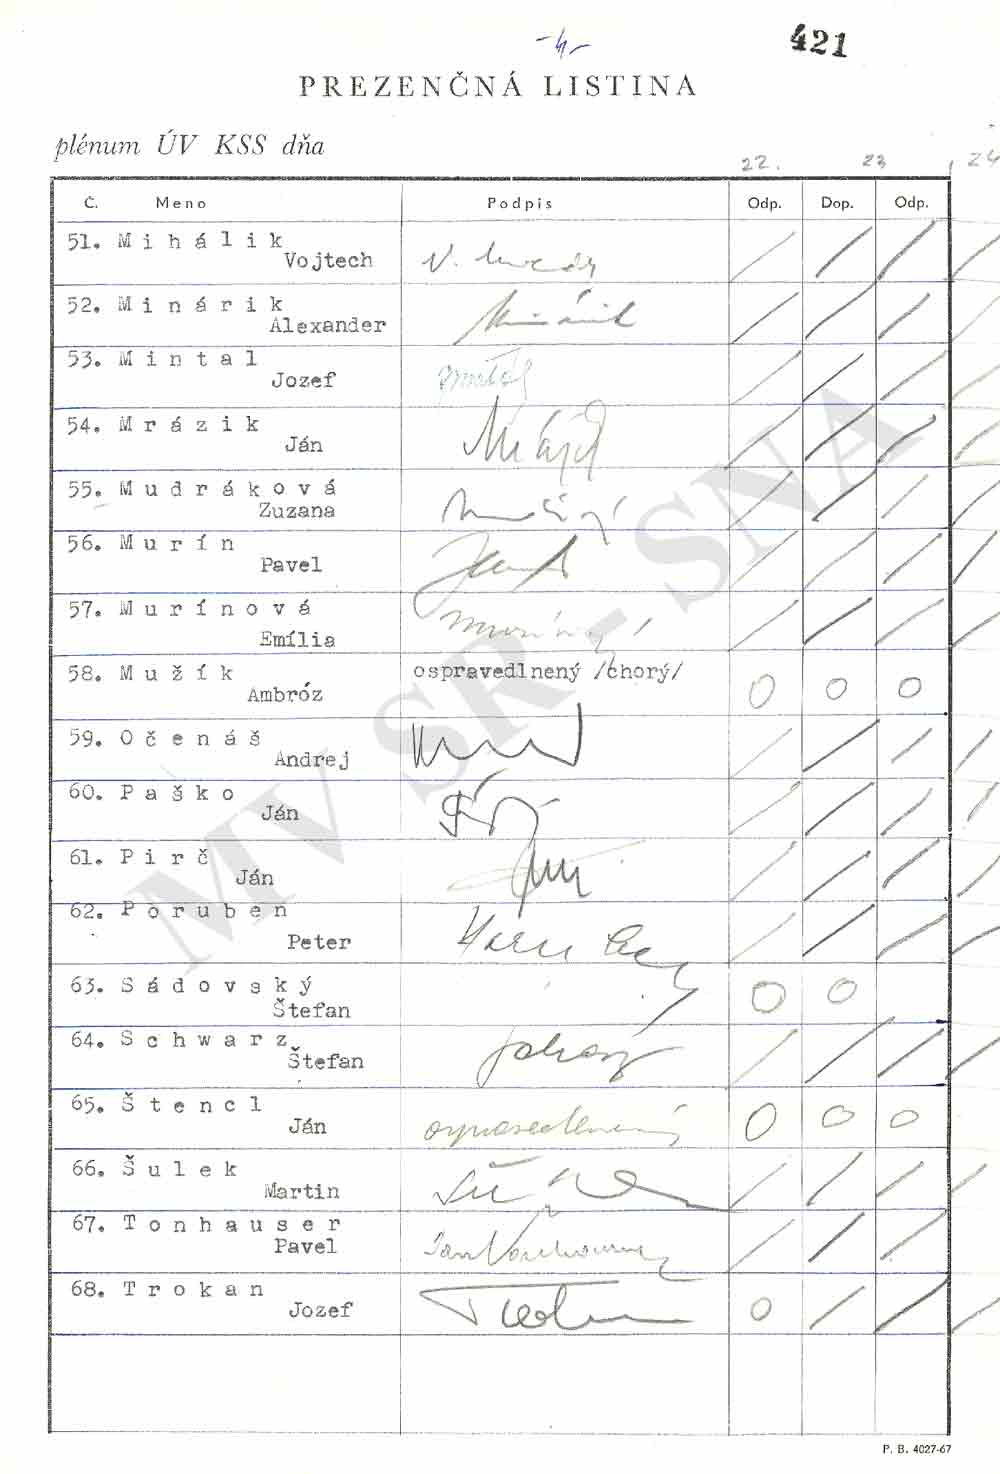 -4-
421
PREZENČNÁ LISTINA
plénum ÚV KSS dňa
22. 23 24
Č. Meno Podpis Odp. Dop. Odp.
51. Mihálik
Vojtech
52. Minárik
Alexander Minárik
53. Mintal
Jozef
54. Mrázik
Ján
55. Mudráková
Zuzana
56. Murín
Pavel
57. Murínová
Emília
58. Mužík ospravedlnený /chorý/
Ambróz O O O
59. Očenáš
Andrej
60. Paško
Ján
61. Pirč
Ján
62. Poruben
Peter
63. Sádovský
Štefan O O
64. Schwarz
Štefan
65. Štencl
Ján ospravedlnený O O O
66. Šulek
Martin
67. Tonhauser
Pavel
68. Trokan
Jozef O
P. B. 4027-67
MV SR - SNA